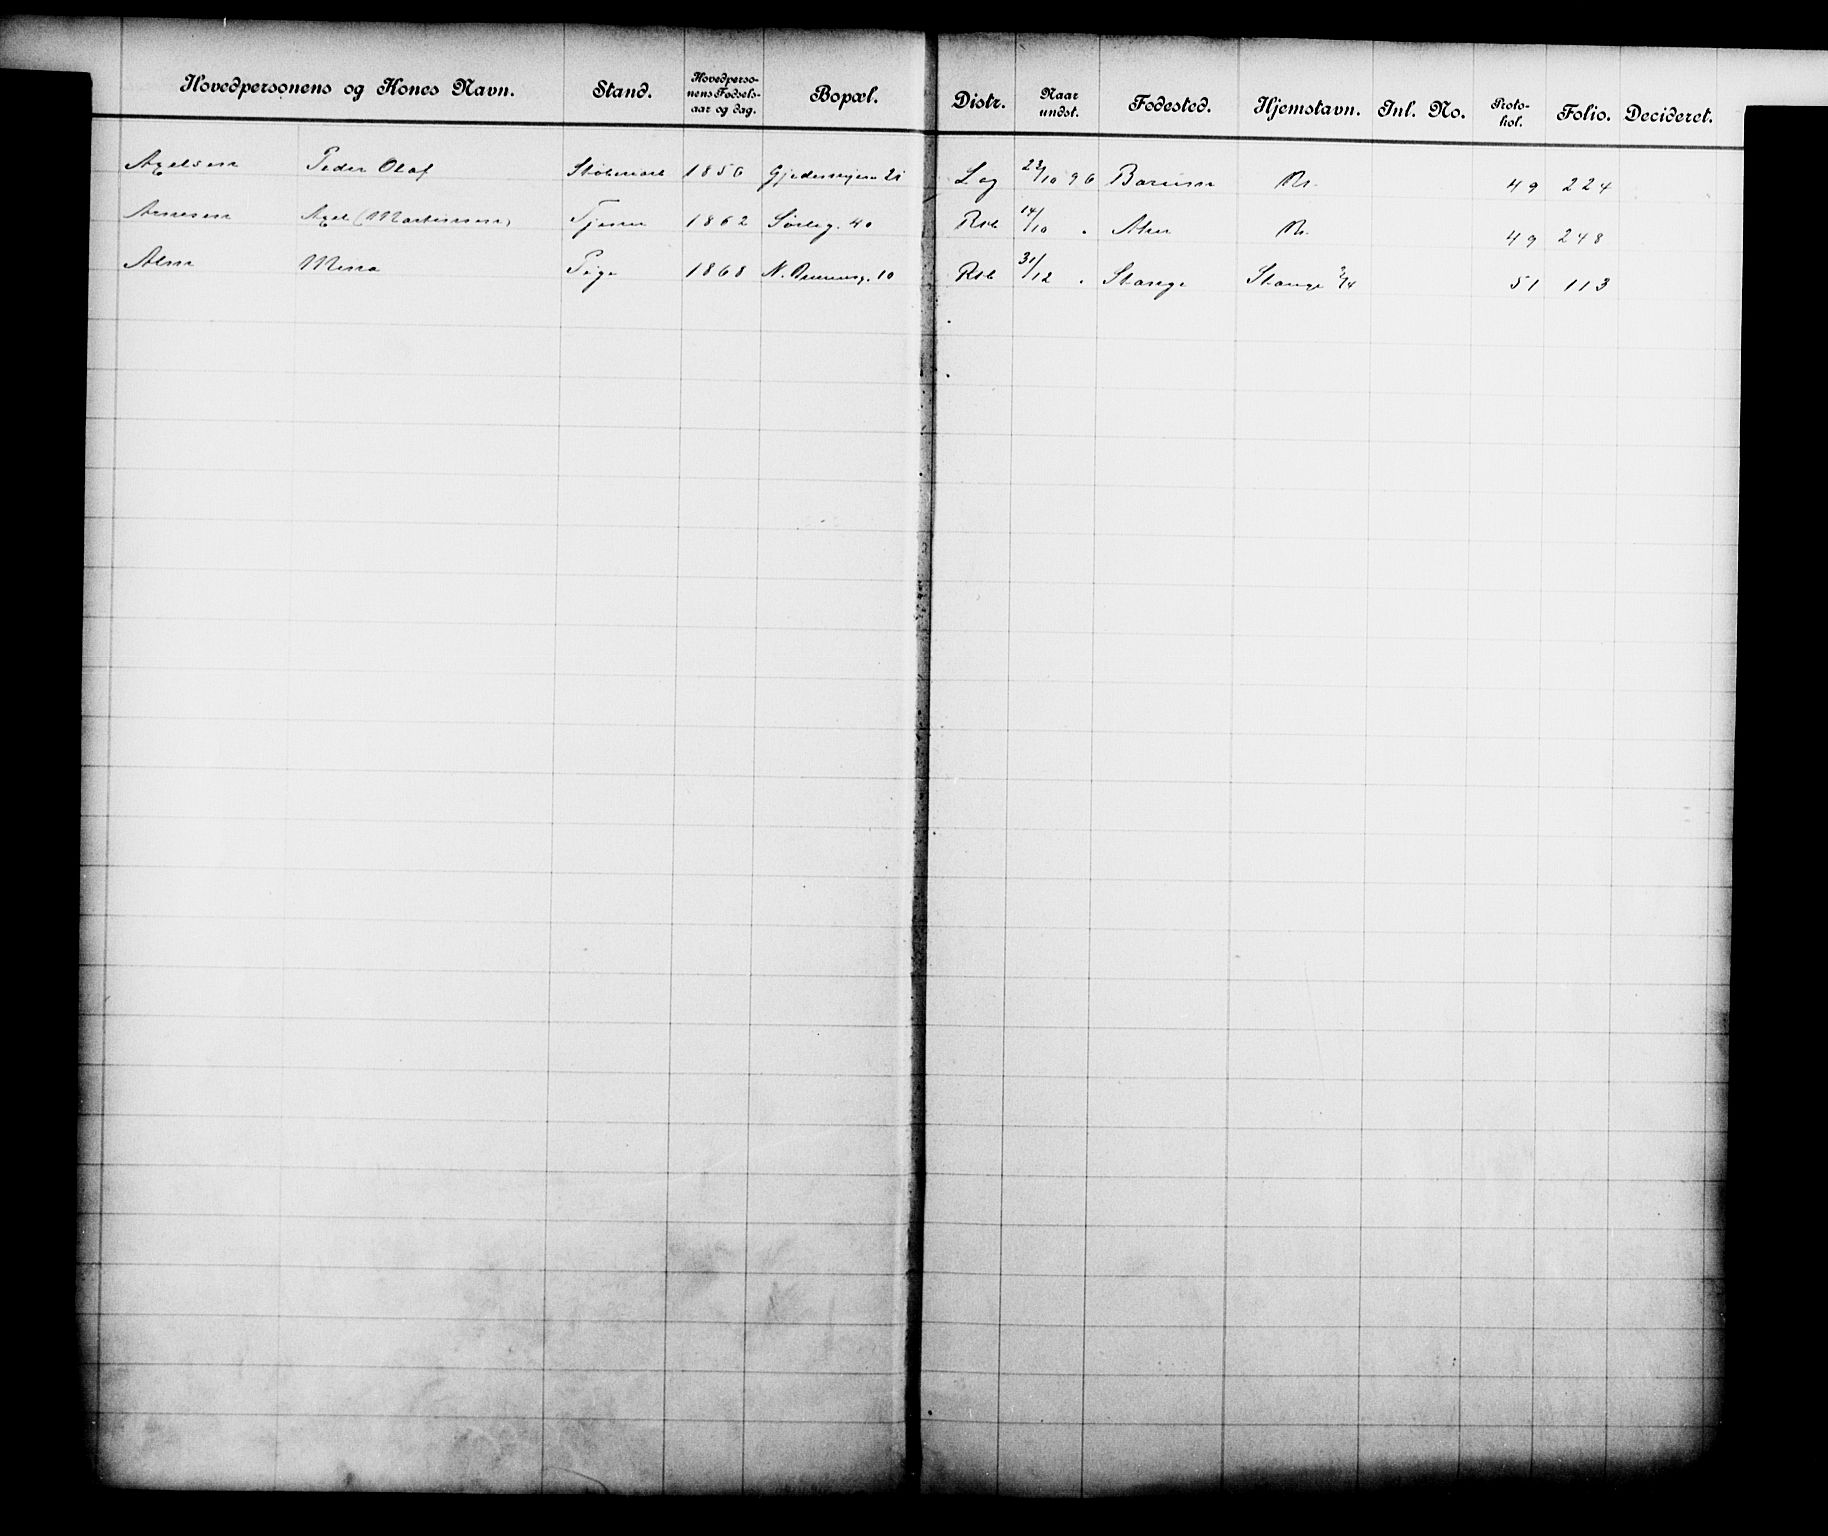 Hovedpersonens og Kones Navn. Stand. Hovedperso-nens Fødsels-aar og dag. Bopæl. Distr. Naar undst. Fødested. Hjemstavn. Inl. No. Proto-kol. Folio. Decideret.
Axelsen Peder Olaf 1856 21 Lag 23/10 96 Bærum 49 224
Arnesen Axel (Martinsen) Tjener 1862 Sørlig. 40 14/10 " Aker 49 248
Alm Mina Pige 1868 10 31/12 " Stange Stange 2/4 51 113